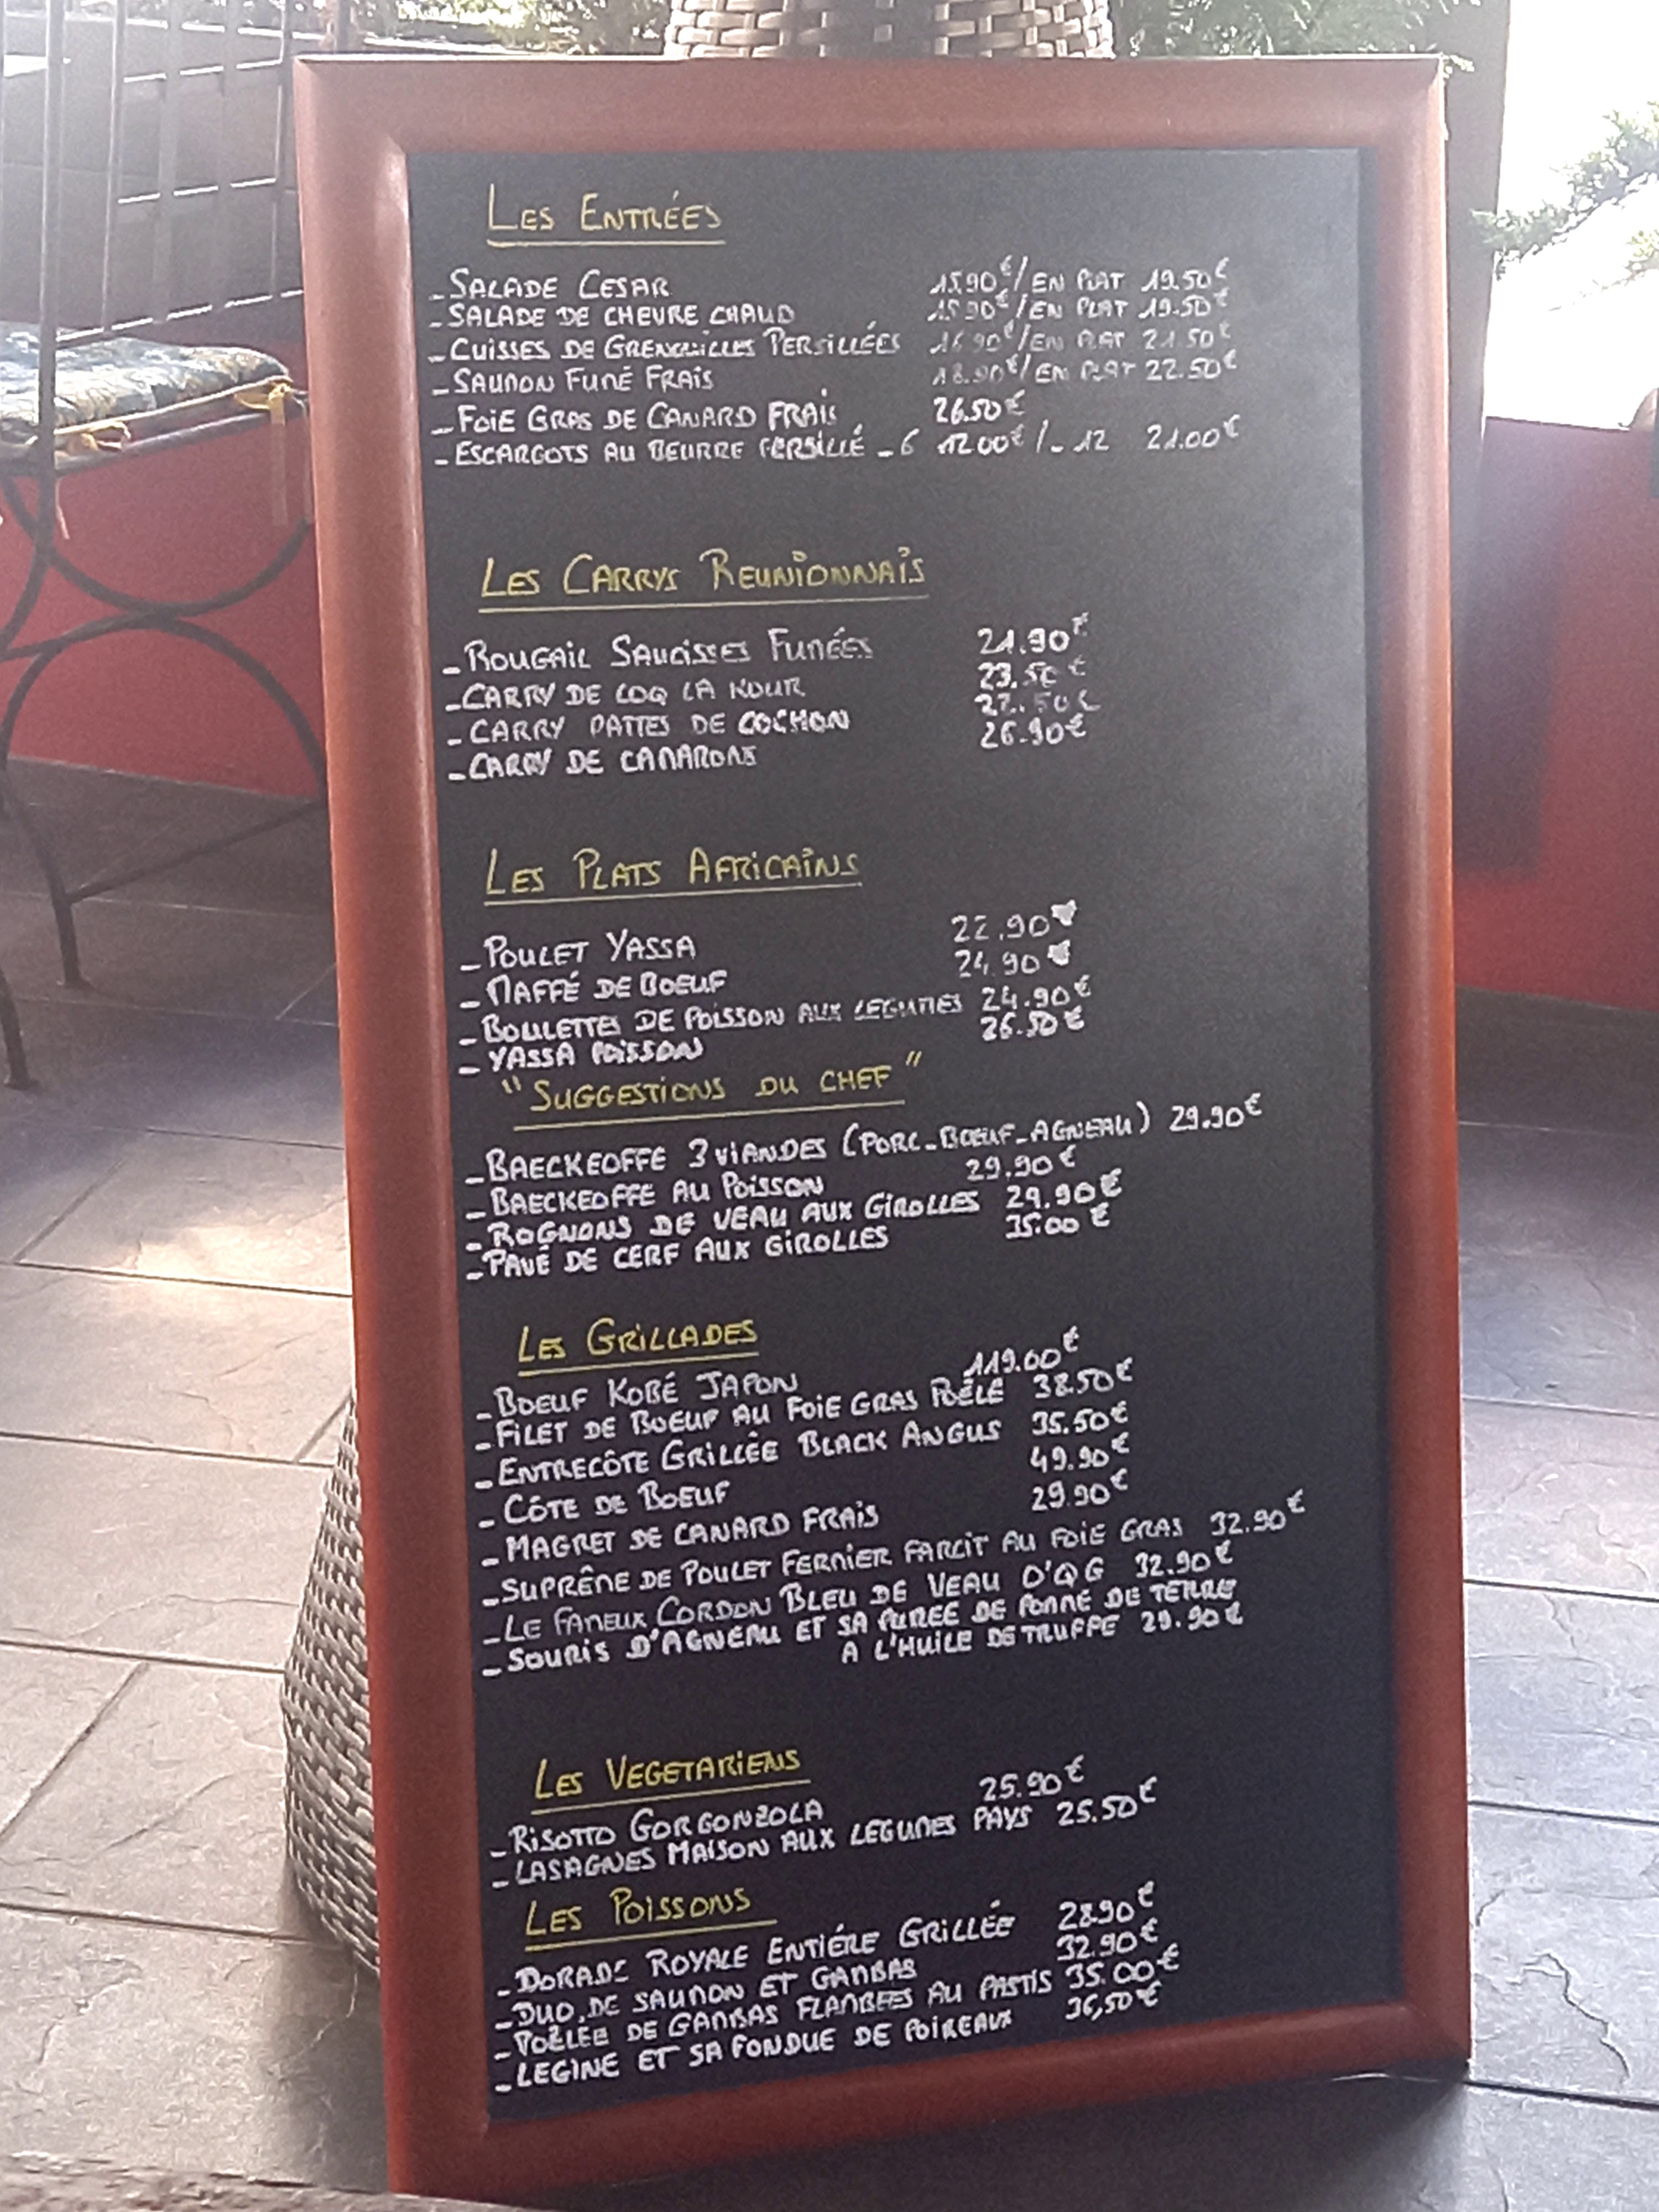 LES ENTRÉES
- SALADE CESAR 15.90€/EN PLAT 19.50€
- SALADE DE CHEVRE CHAUD 15.90€/EN PLAT 19.50€
- CUISSES DE GRENOUILLES PERSILLÉES 16.90€/EN PLAT 21.50€
- SAUMON FUMÉ FRAIS 18.90€/EN PLAT 22.50€
- FOIE GRAS DE CANARD FRAIS 26.50€
- ESCARGOTS AU BEURRE PERSILLÉ - 6 12.00€ /- 12 21.00€
LES CARRYS REUNIONNAIS
- ROUGAIL SAUCISSES FUMÉES 21.90€
- CARRY DE COQ LA KOUR 23.50€
- CARRY PATTES DE COCHON 22.50€
- CARRY DE CAMARONS 26.90€
LES PLATS AFRICAINS
- POULET YASSA 22.90€
- MAFFÉ DE BOEUF 24.90€
- BOULETTES DE POISSON AUX LEGUMES 24.90€
- YASSA POISSON 26.50€
"SUGGESTIONS DU CHEF"
- BAECKEOFFE 3 VIANDES (PORC-BOEUF-AGNEAU) 29.90€
- BAECKEOFFE AU POISSON 29.90€
- ROGNONS DE VEAU AUX GIROLLES 29.90€
- PAVÉ DE CERF AUX GIROLLES 35.00€
LES GRILLADES
- BOEUF KOBÉ JAPON 119.00€
- FILET DE BOEUF AU FOIE GRAS POÊLÉ 38.50€
- ENTRECÔTE GRILLÉE BLACK ANGUS 35.50€
- CÔTE DE BOEUF 49.90€
- MAGRET DE CANARD FRAIS 29.90€
- SUPRÊME DE POULET FERMIER FARCIT AU FOIE GRAS 32.90€
- LE FAMEUX CORDON BLEU DE VEAU D'QG 32.90€
- SOURIS D'AGNEAU ET SA PUREE DE POMME DE TERRE
A L'HUILE DE TRUFFE 29.90€
LES VEGETARIENS
- RISOTTO GORGONZOLA 25.90€
- LASAGNES MAISON AUX LEGUMES PAYS 25.50€
LES POISSONS
- DORADE ROYALE ENTIÉRE GRILLÉE 28.90€
- DUO DE SAUMON ET GAMBAS 32.90€
- POÊLÉE DE GAMBAS FLAMBEES AU PASTIS 35.00€
- LEGINE ET SA FONDUE DE POIREAUX 36,50€